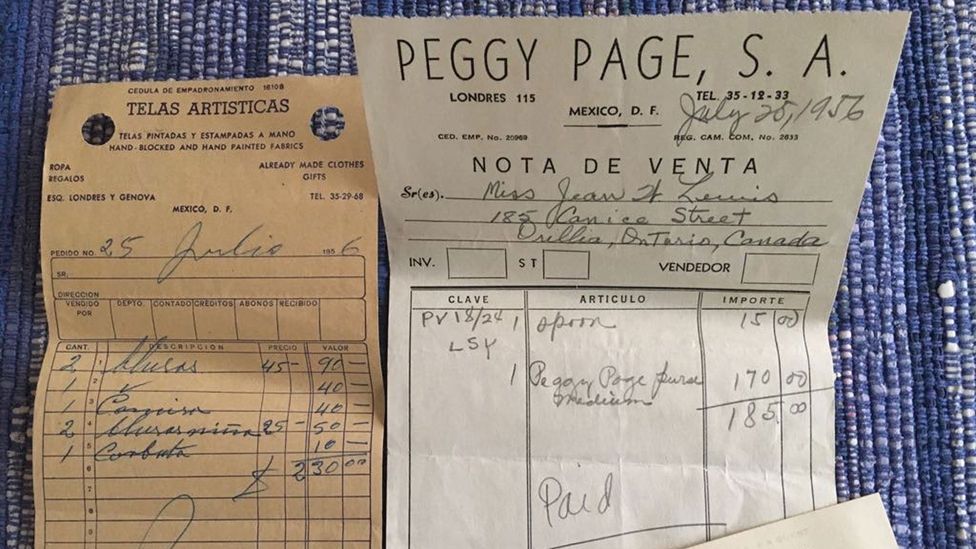 CEDULA DE EMPADRONAMIENTO 1610B
TELAS ARTISTICAS
TELAS PINTADAS Y ESTAMPADAS A MANO
HAND-BLOCKED AND HAND PAINTED FABRICS
ROPA
REGALOS
ALREADY MADE CLOTHES
GIFTS
ESQ. LONDRES Y GENOVA
TEL. 35-29-68
MEXICO, D. F.
PEDIDO NO. 25 Julio 1956
SR.
DIRECCION
VENDIDO POR DEPTO. CONTADO CRÉDITOS ABONOS RECIBIDO
CANT. DESCRIPCION PRECIO VALOR
2 Blusas 45— 90—
1 " 40—
1 Camisa 40—
2 Blusas niña 25— 50—
1 Corbata 10—
$ 230 00
1
2
3
4
5
6
7
8
9
PEGGY PAGE, S. A.
LONDRES 115
TEL. 35-12-33
MEXICO, D. F.
July 25, 1956
CED. EMP. No. 20969
REG. CAM. COM. No. 2633
NOTA DE VENTA
Sr(es). Miss Jean W Lewis
185 Canice Street
Orillia, Ontario, Canada
INV. ST VENDEDOR
CLAVE ARTICULO IMPORTE
PV 18/24 1 spoon 15 00
LSY
1 Peggy Page purse 170 00
medium
185 00
Paid